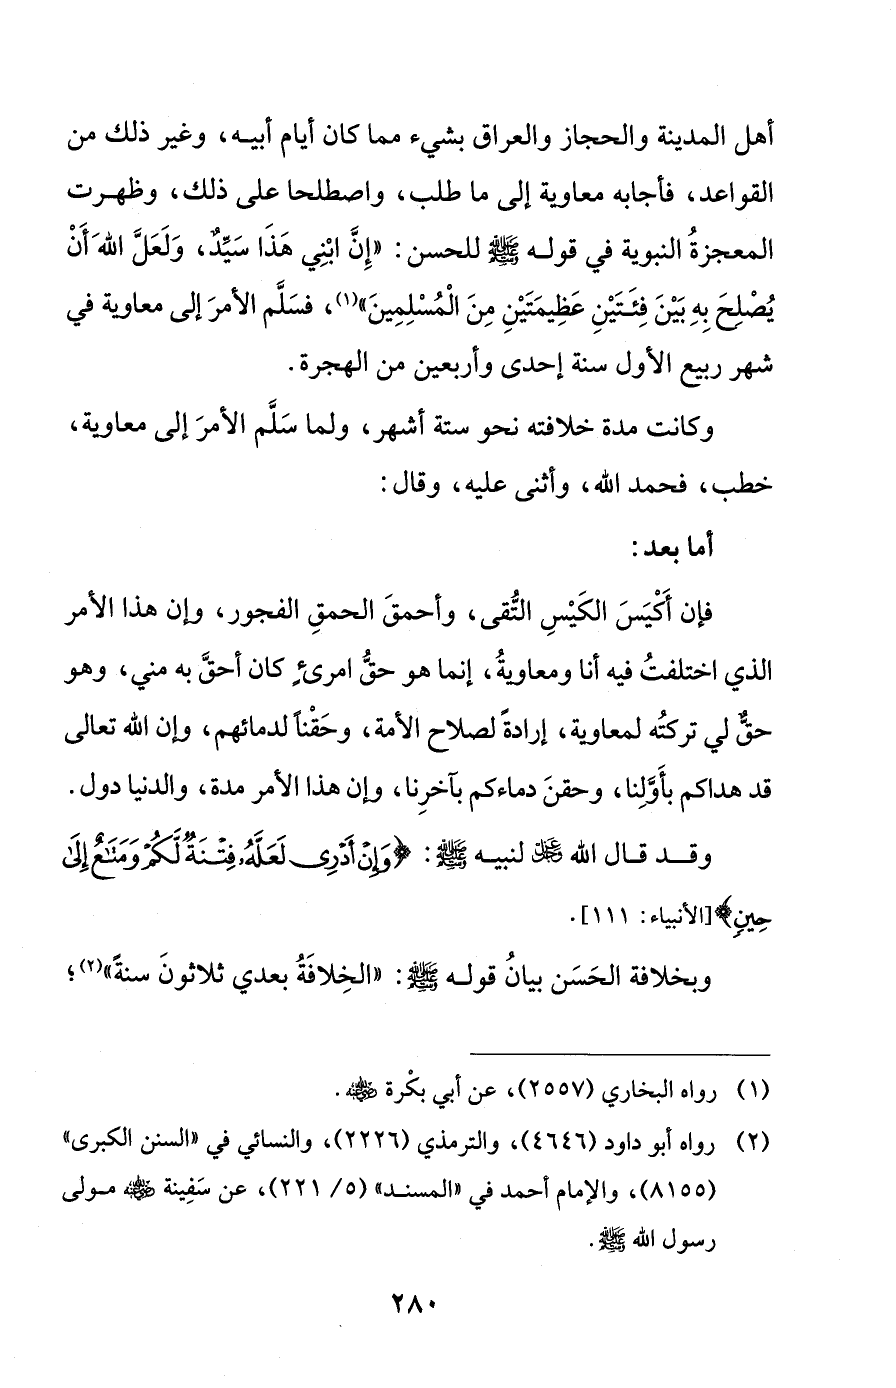 أهل المدينة والحجاز والعراق بشيء مما كان أيام أبيه، وغير ذلك من
القواعد، فأجابه معاوية إلى ما طلب، واصطلحا على ذلك، وظهرت
المعجزةُ النبوية في قوله ﷺ للحسن: «إِنَّ ابْنِي هَذَا سَيِّدٌ، وَلَعَلَّ اللهَ أَنْ
يُصْلِحَ بِهِ بَيْنَ فِئَتَيْنِ عَظِيمَتَيْنِ مِنَ الْمُسْلِمِينَ»(١)، فسَلَّم الأمرَ إلى معاوية في
شهر ربيع الأول سنة إحدى وأربعين من الهجرة.
وكانت مدة خلافته نحو ستة أشهر، ولما سَلَّم الأمرَ إلى معاوية،
خطب، فحمد الله، وأثنى عليه، وقال:
أما بعد:
فإن أَكْيَسَ الكَيْسِ التُّقى، وأحمقَ الحمقِ الفجور، وإن هذا الأمر
الذي اختلفتُ فيه أنا ومعاويةُ، إنما هو حقُّ امرئٍ كان أحقَّ به مني، وهو
حقٌّ لي تركتُه لمعاوية، إرادةً لصلاح الأمة، وحَقْناً لدمائهم، وإن الله تعالى
قد هداكم بأَوَّلِنا، وحقنَ دماءكم بآخرِنا، وإن هذا الأمر مدة، والدنيا دول.
وقد قال الله ﷿ لنبيه ﷺ: ﴿وَإِنْ أَدْرِى لَعَلَّهُۥ فِتْنَةٌ لَّكُمْ وَمَتَٰعٌ إِلَىٰ
حِينٍ﴾ [الأنبياء: ١١١].
وبخلافة الحَسَن بيانُ قوله ﷺ: «الخِلافَةُ بعدي ثلاثونَ سنةً»(٢)؛
(١) رواه البخاري (٢٥٥٧)، عن أبي بكْرة رضي الله عنه.
(٢) رواه أبو داود (٤٦٤٦)، والترمذي (٢٢٢٦)، والنسائي في «السنن الكبرى»
(٨١٥٥)، والإمام أحمد في «المسند» (٥/ ٢٢١)، عن سَفِينة رضي الله عنه مولى
رسول الله ﷺ.
٢٨٠